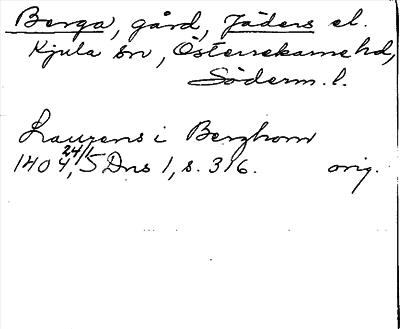 Berga, gård, Jäders el.
Kjula sn, Österrekarne hd,
Söderm. l.
Laurens i Berghom
24/1
1404, 5 Dns 1, s. 316. orig.